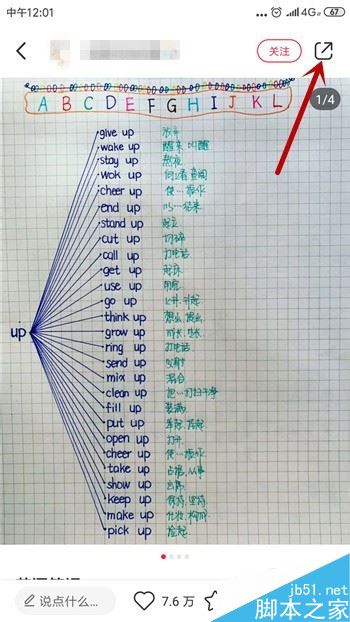 中午12:01 4G 67
关注
A B C D E F G H I J K L
1/4
up
give up 放弃
wake up 醒来 叫醒
stay up 熬夜
wok up
cheer up 使…振作
end up 以…结束
stand up 起立
cut up 切碎
call up 打电话
get up 起床
use up 用完
go up 上升,升起
think up 想出,提出
grow up 成长,生长
ring up 打电话
send up 发射
mix up 混合
clean up 把…打扫干净
fill up 装满
put up 举起,
open up 打开
cheer up 使…振作
take up 占据,从事
show up 出席
keep up 保持,坚持
make up 化妆,构成
pick up 捡起
英语笔记
说点什么...
7.6 万
jb51.net
脚本之家